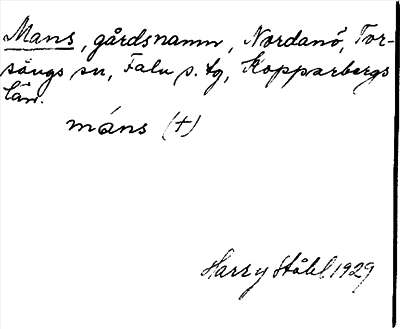 Mans, gårdsnamn, Nordanö, Tor-
sångs sn, Falu s. tg, Kopparbergs
län.
máns (+)
Harry Ståhl 1929